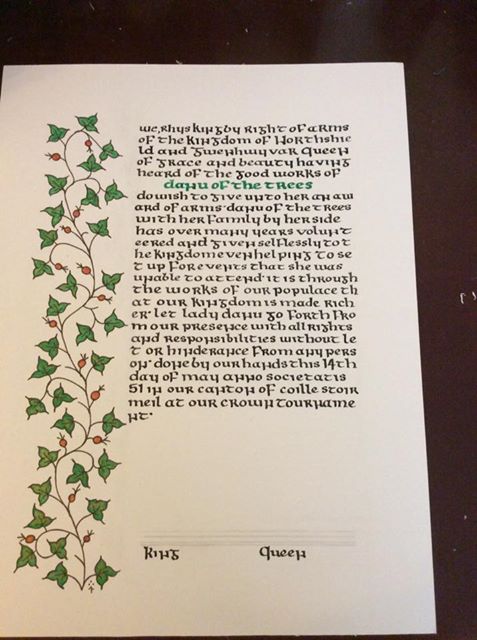 we, Rhys king by right of arms
of the kingdom of Northshie
ld and Gwenhwyvar Queen
of grace and beauty having
heard of the good works of
danu of the trees
do wish to give unto her an aw
ard of arms. danu of the trees
with her family by her side
has over many years volunt
eered and given selflessly to t
he kingdom even helping to se
t up for events that she was
unable to attend. it is through
the works of our populace th
at our kingdom is made rich
er. let lady danu go forth fro
m our presence with all rights
and responsibilities without le
t or hinderance from any pers
on. done by our hands this 14th
day of may anno societatis
51 in our canton of coille stoir
meil at our crown tourname
nt.
king queen